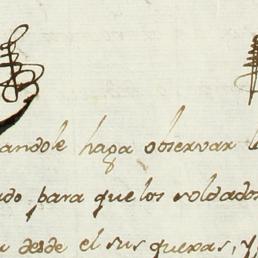 andole haga observar l
ado, para que los soldados
desde el sus quexas, y